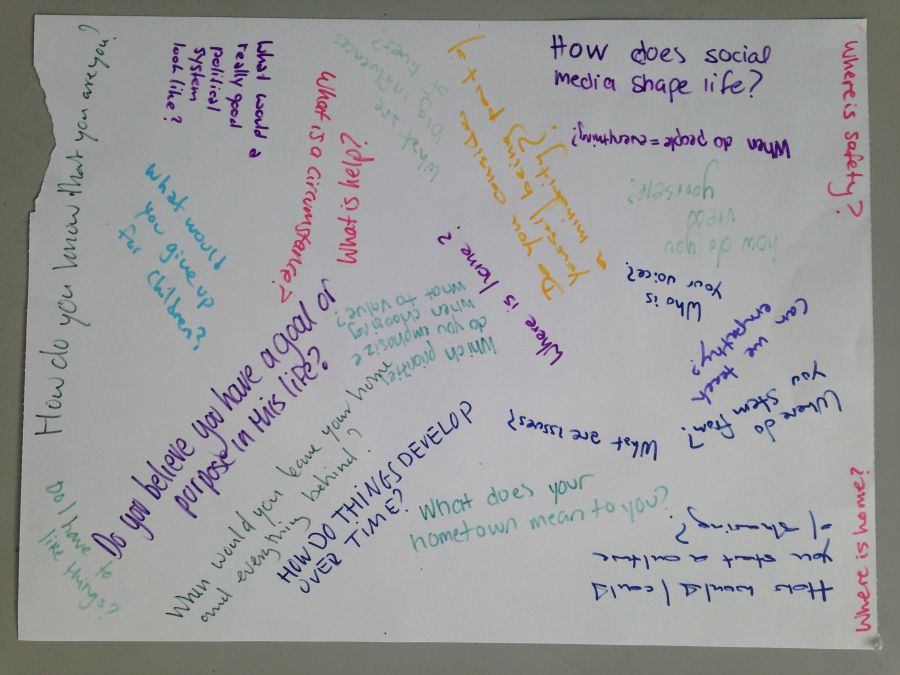 How do you know that you are you?
What would a
really good
political
system
look like?
What are
big influences
of lives?
What is a circumstance?
What is help?
Do you consider
yourself being part of
a minority?
How does social
media shape life?
When do people = everything?
Where is safety?
how do you
view
yourself?
What would
you give up
for children?
Where is home?
Who is
your voice?
Can we teach
empathy?
Which priorities
do you emphasize
when choosing
what to value?
Do you believe you have a goal or
purpose in this life?
Where do
you stem from?
What are issues?
When would you leave your home
and everything behind?
HOW DO THINGS DEVELOP
OVER TIME?
What does your
hometown mean to you?
Do I have to
like things?
How would / could
you start a culture
of sharing?
Where is home?